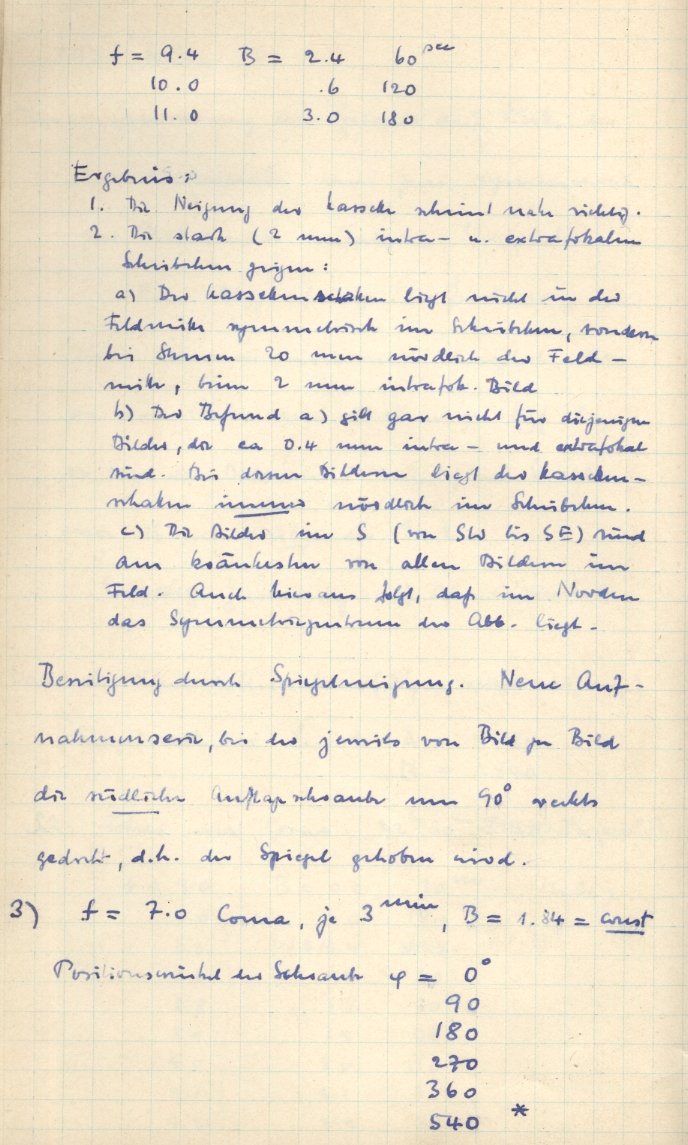 f = 9.4 B = 2.4 60 sec
10.0 .6 120
11.0 3.0 180
Ergebnis:
1. Die Neigung der Kassette scheint nahe richtig.
2. Die stark (2 mm) intra- u. extrafokalen
Scheibchen zeigen:
a) Der Kassettenschatten liegt nicht in der
Feldmitte symmetrisch im Scheibchen, sondern
bei Sternen 20 mm nördlich der Feld-
mitte, beim 2 mm intrafok. Bild
b) Der Befund a) gilt gar nicht für diejenigen
Bilder, die ca 0.4 mm intra- und extrafokal
sind. Bei diesen Bildern liegt der Kassetten-
schatten immer nördlich im Scheibchen.
c) Die Bilder im S (von SW bis SE) sind
am von allen Bildern im
Feld. Auch hieraus folgt, daß im Norden
das Symmetriezentrum der Abb. liegt.
Beseitigung durch Spiegelneigung. Neue Auf-
nahmenserie, bei der jeweils von Bild zu Bild
die südliche schraube um 90° rechts
gedreht, d.h. der Spiegel gehoben wird.
3) f = 7.0 Coma, je 3 min, B = 1.84 = const
Positionswinkel der Schraube φ = 0°
90
180
270
360
540 *